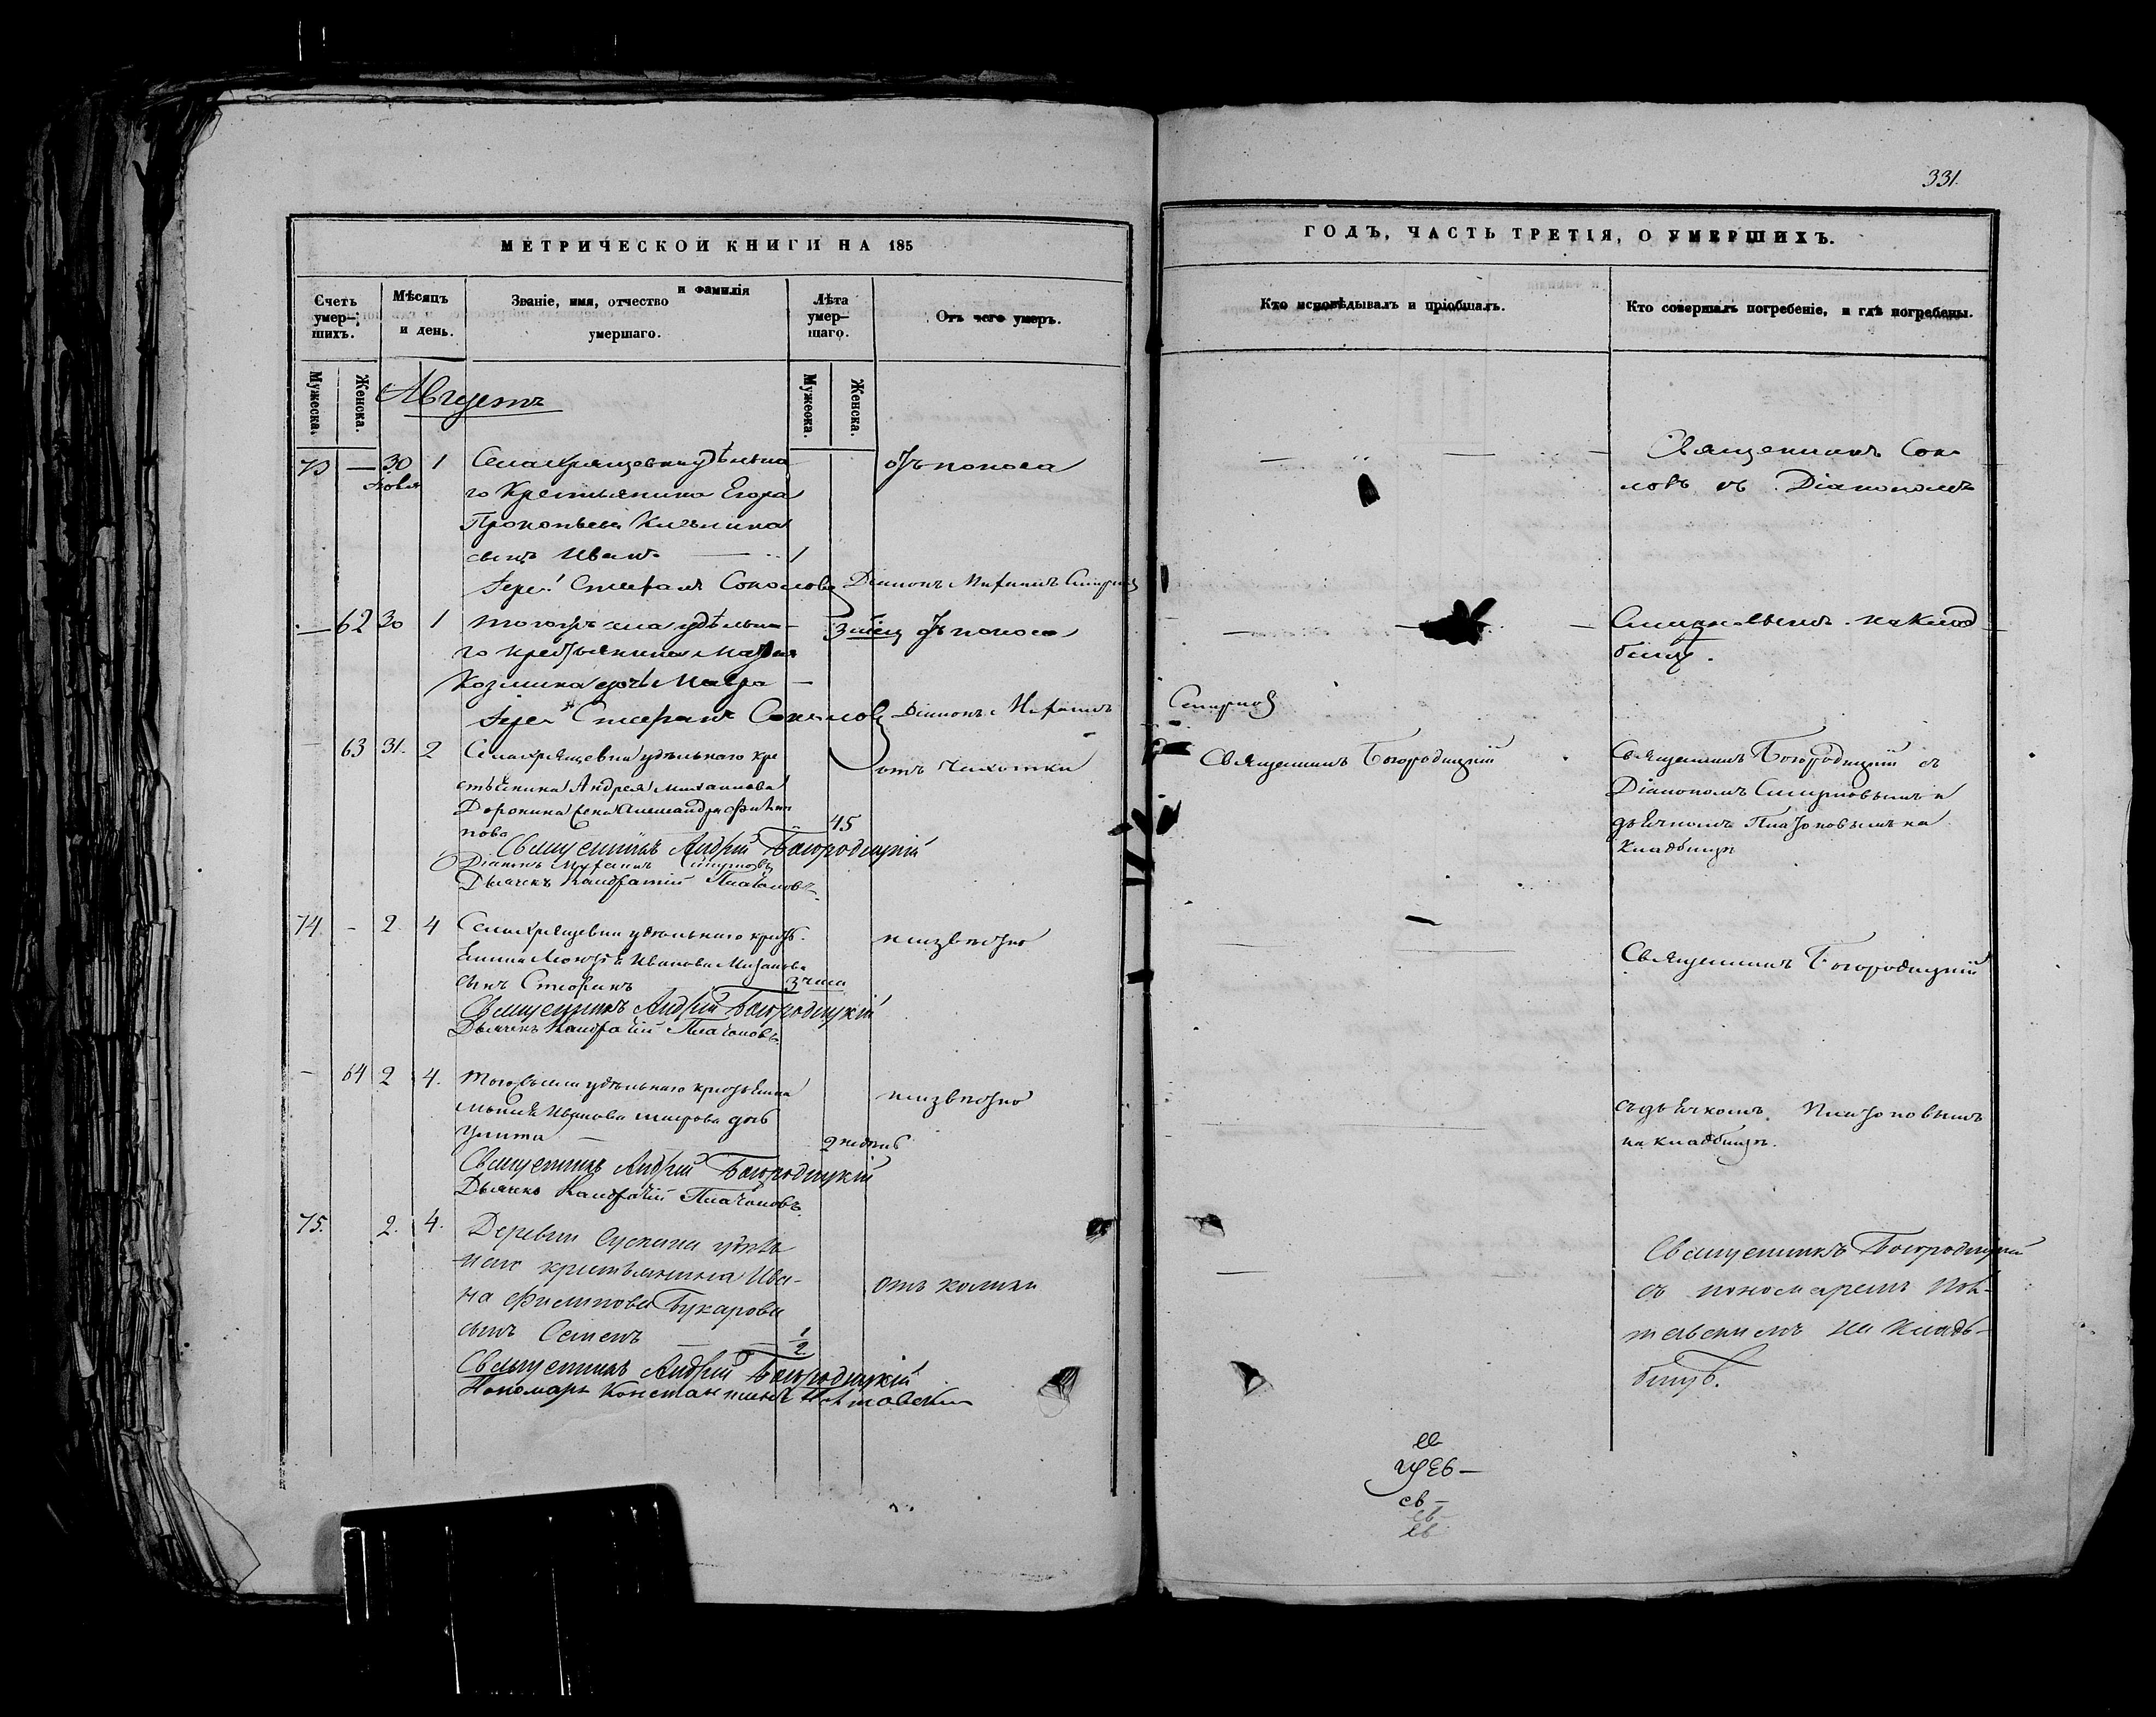 331.
МЕТРИЧЕСКОЙ КНИГИ НА 185
ГОДЪ, ЧАСТЬ ТРЕТІЯ, О УМЕРШИХЪ.
Счетъ умер-шихъ.
Мѣсяцъ и день.
Званіе, имя, отчество и фамилія умершаго.
Лѣта умер-шаго.
Отъ чего умеръ.
Кто исповѣдывалъ и пріобщалъ.
Кто совершалъ погребеніе, и гдѣ погребены.
Мужеска.
Женска.
Мужеска.
Женска.
Августъ
73 — 30 1 Села Хрящевки удѣльна
Іюля
го крестьянина Егора
Прокопьева
сынъ Иванъ — 1
отъ поноса
Священникъ Соко
ловъ съ Діакономъ
Іерей Стефанъ Соколовъ Діаконъ Михаилъ Смирнов
— 62 30 1 того жъ села удѣльна
го крестьянина
Козмина дочь Мавра
отъ поноса
Смирновымъ на клад
бищѣ.
Іерей Стефанъ Соколовъ Діаконъ Михаилъ Смирнов
63 31. 2 Села Хрящевки удѣльнаго кре
стьянина Андрея Михайлова
Доронина жена Александра Филип
пова
45
отъ чахотки
Священникъ Богородицкій
Священникъ Богородицкій съ
Діакономъ Смирновымъ и
дьячкомъ Платоновымъ на
кладбищѣ
Священникъ Андрей Богородицкій
Діаконъ Михаилъ Смирновъ
Дьячекъ Кондратій Платоновъ
74. — 2. 4 Села Хрящевки удѣльнаго кресть
янина Иванова
сынъ 3 часа
неизвѣстно
Священникъ Богородицкій
Священникъ Андрей Богородицкій
Дьячекъ Кондратій Платоновъ.
— 64 2 4. Того жъ села удѣльнаго крестьянина
Иванова дочь
Улита — 2 недѣли
неизвѣстно
съ дьячкомъ Платоновымъ
на кладбищѣ.
Священникъ Андрей Богородицкій
Дьячекъ Кондратій Платоновъ.
75. 2. 4. Деревни Сускана удѣль
наго крестьянина Ива-
на Филипова Букарова
сынъ Семенъ — 1/2.
отъ колики
Священникъ Богородицкій
съ пономаремъ
на кладь-
бищѣ.
Священникъ Андрей Богородицкій
Пономарь Константинъ